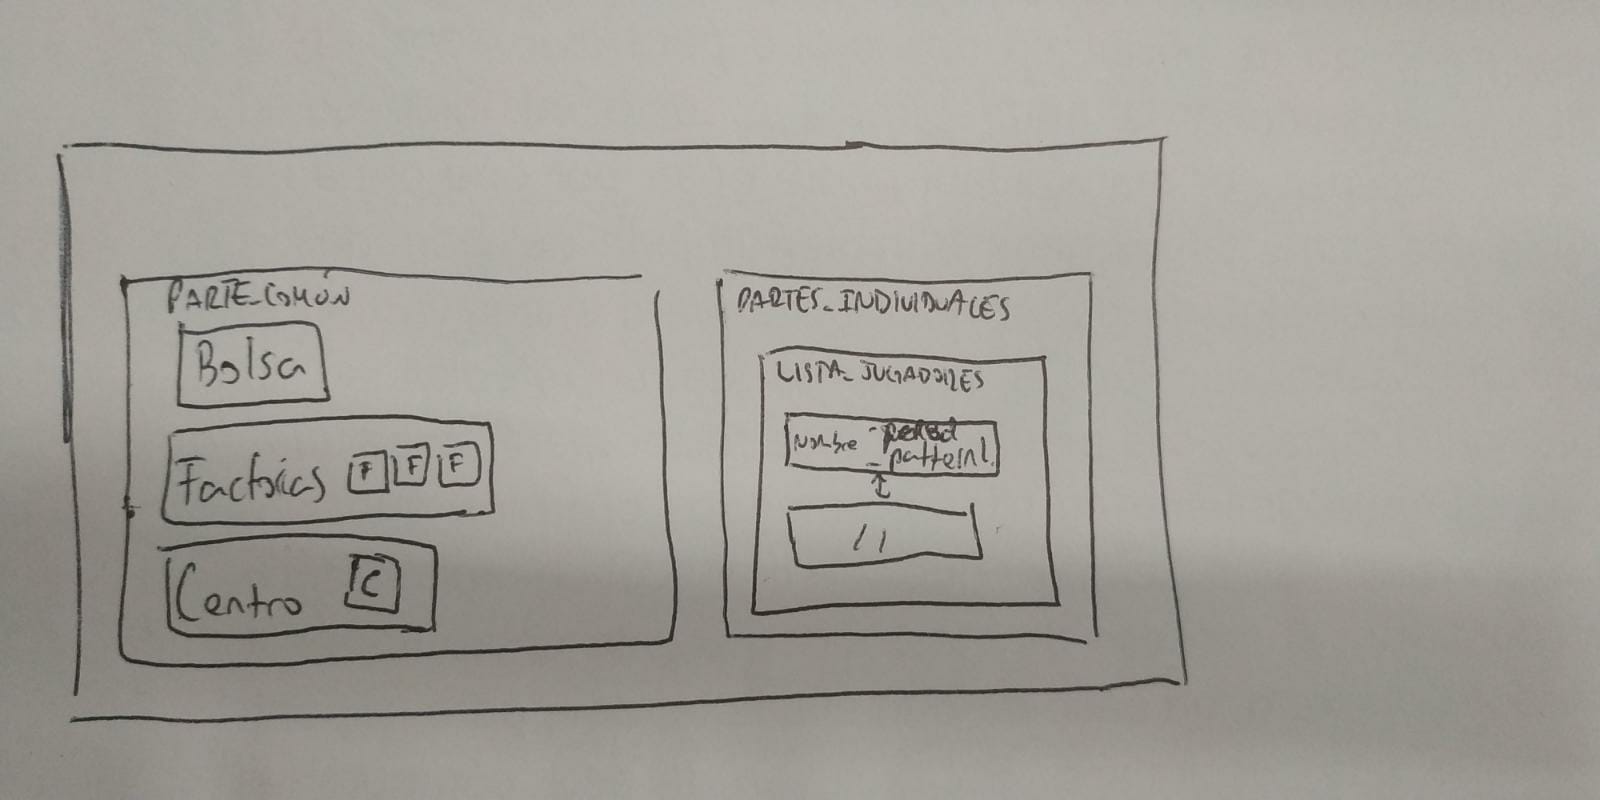 PARTE_COMÚN
Bolsa
Factorías F F F
Centro C
PARTES_INDIVIDUALES
LISTA_JUGADORES
Nombre -
- patternl.
//